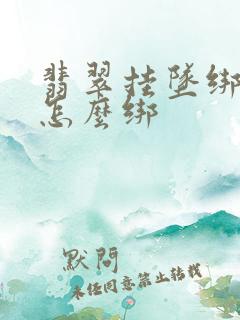 翡翠挂坠绑
怎麼绑
默問
未经同意禁止转载